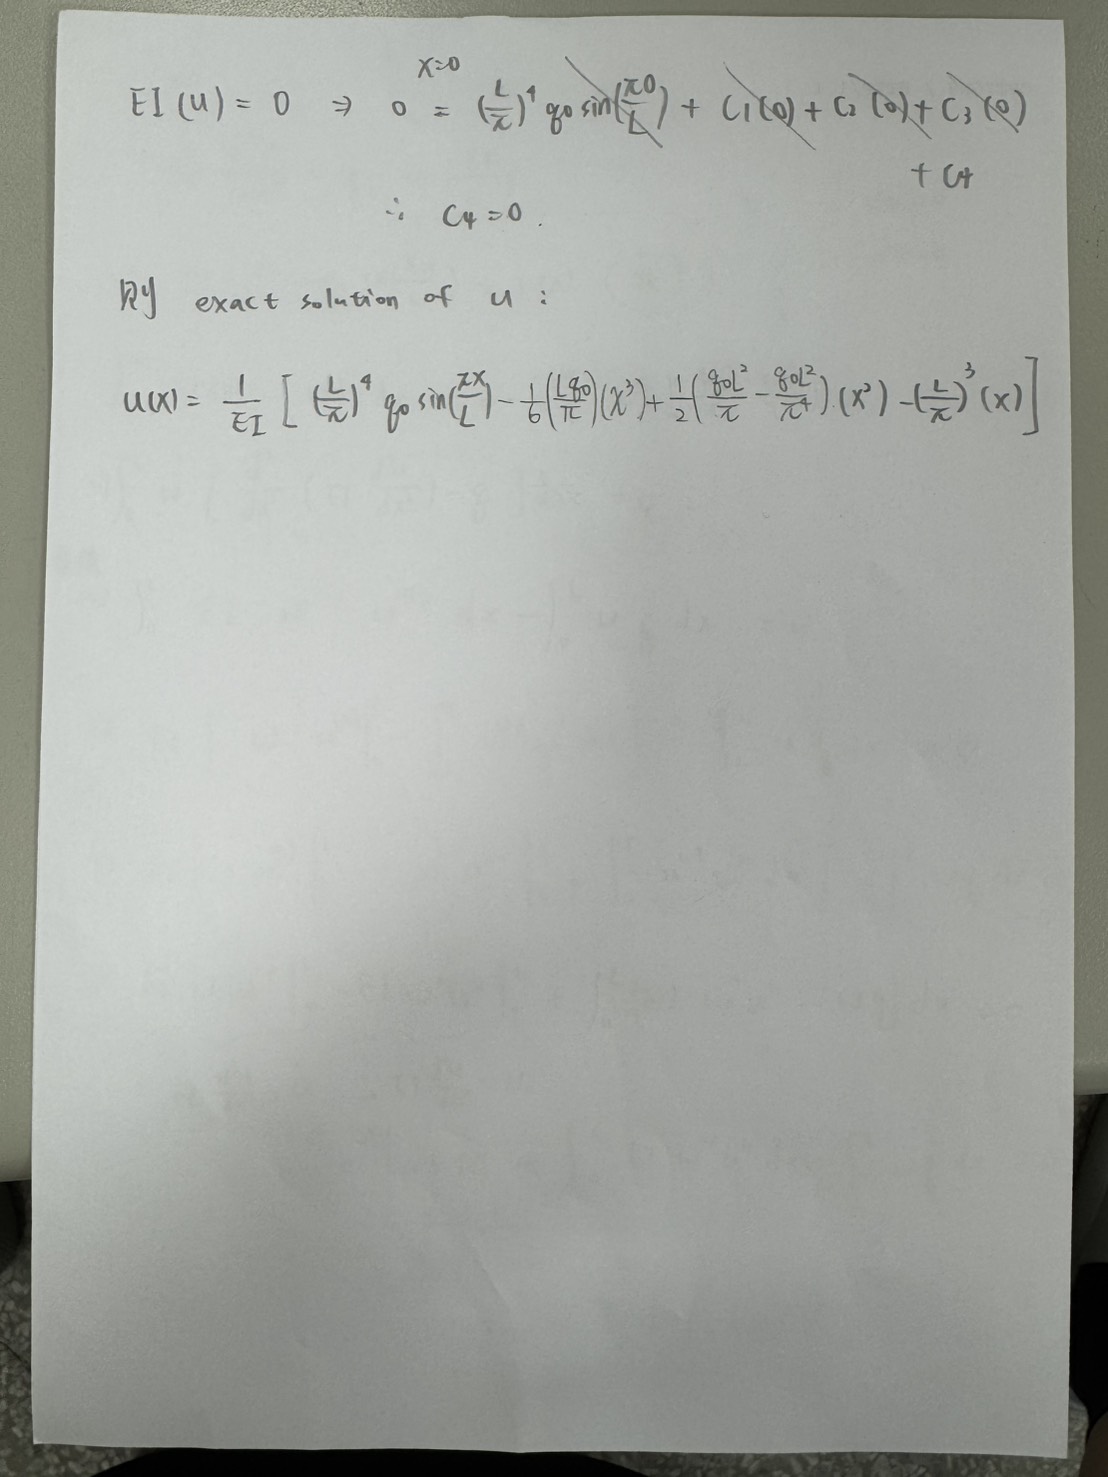 x=0
EI (u) = 0 ⇒ 0 = (L/π)⁴ q₀ sin(π0/L) + C₁(0) + C₂(0) + C₃(0)
+ C₄
∴ C₄ = 0.
則 exact solution of u :
u(x) = 1/EI [ (L/π)⁴ q₀ sin(πx/L) - 1/6 (Lq₀/π)(x³) + 1/2 (q₀L²/π - q₀L²/π⁴).(x²) - (L/π)³ (x) ]